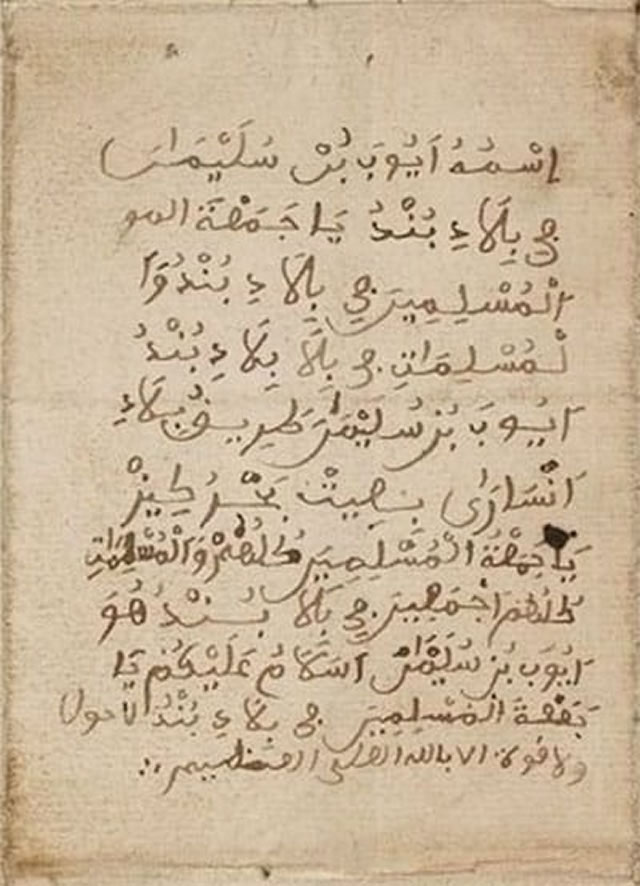 اِسْمُهُ اَيُوبَ بُنْ سُلَيْمَان
فِي بِلَادِ بُنْدُ يَا جَمَعَة المو
الْمُسْلِمِينَ فِي بِلَادِ بُنْدُ وَا
لْمُسْلِمَاتِ فِي بِلَا بِلَادِ بُنْدُ
اَيُوبَ بُنْ سُلَيْمَانَ بِلَادِ
اَنْسَارَى
يَا جَمَعَةُ الْمُسْلِمِينَ كُلُهُمْ وَالْمُسْلِمَاتِ
كُلُهُمْ اَجْمَعِينَ فِي بِلَادِ بُنْدُ هُوَ
اَيُوبَ بُنْ سُلَيْمَانْ اَسَّلَامُ عَلَيْكُمْ يَا
جَمَعَةَ الْمُسْلِمِينَ فِي بِلَادِ بُنْدُ لاحول
ولا قوة الا بالله العلي العظيم